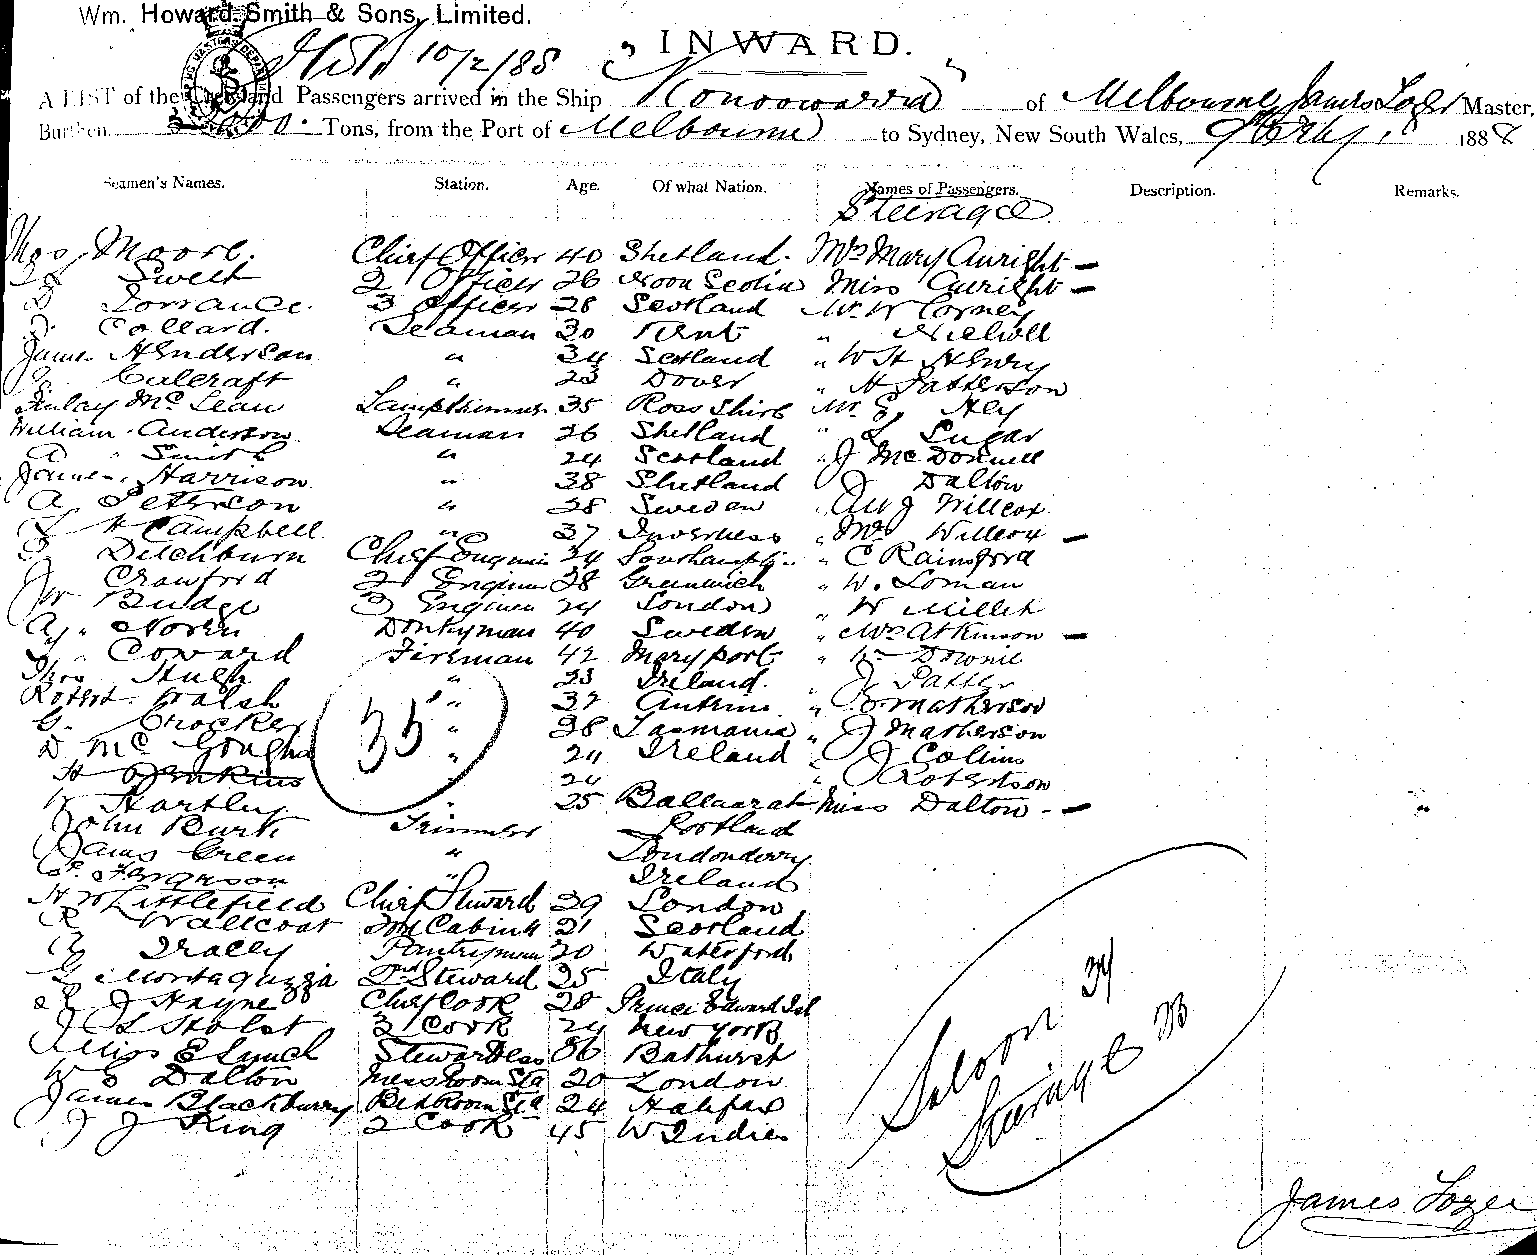 Wm. Howard Smith & Sons, Limited.
10/2/88
INWARD.
A LIST of the Crew and Passengers arrived in the Ship Konoowarra of Melbourne, James Lozer Master,
Burthen Tons, from the Port of Melbourne to Sydney, New South Wales, 1888
Seamen's Names. Station. Age. Of what Nation. Names of Passengers. Description. Remarks.
Steerage
Thos Moore. Chief Officer 40 Shetland. Mrs Mary Auright -
Sweet 2 Officer 26 Nova Scotia Miss Auright -
Torrance. 3 Officer 28 Scotland Mr. W Corney
Collard. Seaman 30 Kent "
James Henderson " 34 Scotland " W H Henry
Calcraft " 23 Dover " H Patterson
Finlay Mc Lean Lamptrimmer 35 Ross Shire Mr. E. Hey
William Anderson Seaman 26 Shetland " L Sugar
A Smith " 24 Scotland " J McDonnell
James Harrison " 38 Shetland " J Dalton
A Peterson " 28 Sweden Willcox
H Campbell " 37 Inverness " Mrs Willcox -
Ditchburn Chief Engineer 34 Southampton " C Rainsford
Crawford 2 Engineer 28 Greenwich " W. Loman
Budge 3 Engineer 24 London " W Millet
Noren Donkyman 40 Sweden " Mrs Atkinson -
Coward Fireman 42 Maryport " Downie
Thos Hugh " 23 Ireland. " J
Robert Walsh " 37 Antrim " Matherson
G. Crocker " 28 Tasmania " J Matherson
D Mc Gough " 24 Ireland J Collins
H Jenkins 24 " J Robertson
W Hartley " 25 Ballaarat Miss Dalton. -
35
John Burk Trimmer Portland
James Green " Londonderry
Ferguson " Ireland
H W Littlefield Chief Steward 39 London
R Wallcoat Cabin 21 Scotland
Trally Pantryman 20 Waterford
G Montaguzzia 2nd Steward 25 Italy
J Hayne Chief Cook 28 Prince Edward Isl
J L Stolst 3 Cook 24 New York
Miss E Lynch Stewardess 36 Bathurst
W S Dalton Messroom Std 20 London
James Blackburry Bedroom Std 24 Halifax
J J King 2 Cook 45 W Indies
Saloon 34
Steerage 23
James Lozer